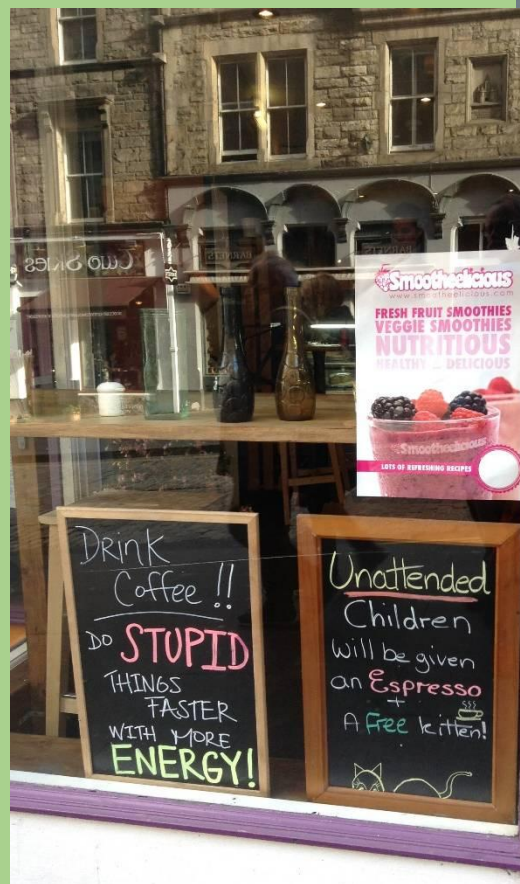 Two Skies
BARNETS
BARNETS
Smootheelicious
www.smootheelicious.com
FRESH FRUIT SMOOTHIES
VEGGIE SMOOTHIES
NUTRITIOUS
HEALTHY ... DELICIOUS
Smootheelicious
LOTS OF REFRESHING RECIPES
DRINK
Coffee !!
DO STUPID
THINGS
FASTER
WITH MORE
ENERGY!
Unattended
Children
will be given
an Espresso
+
A Free kitten!